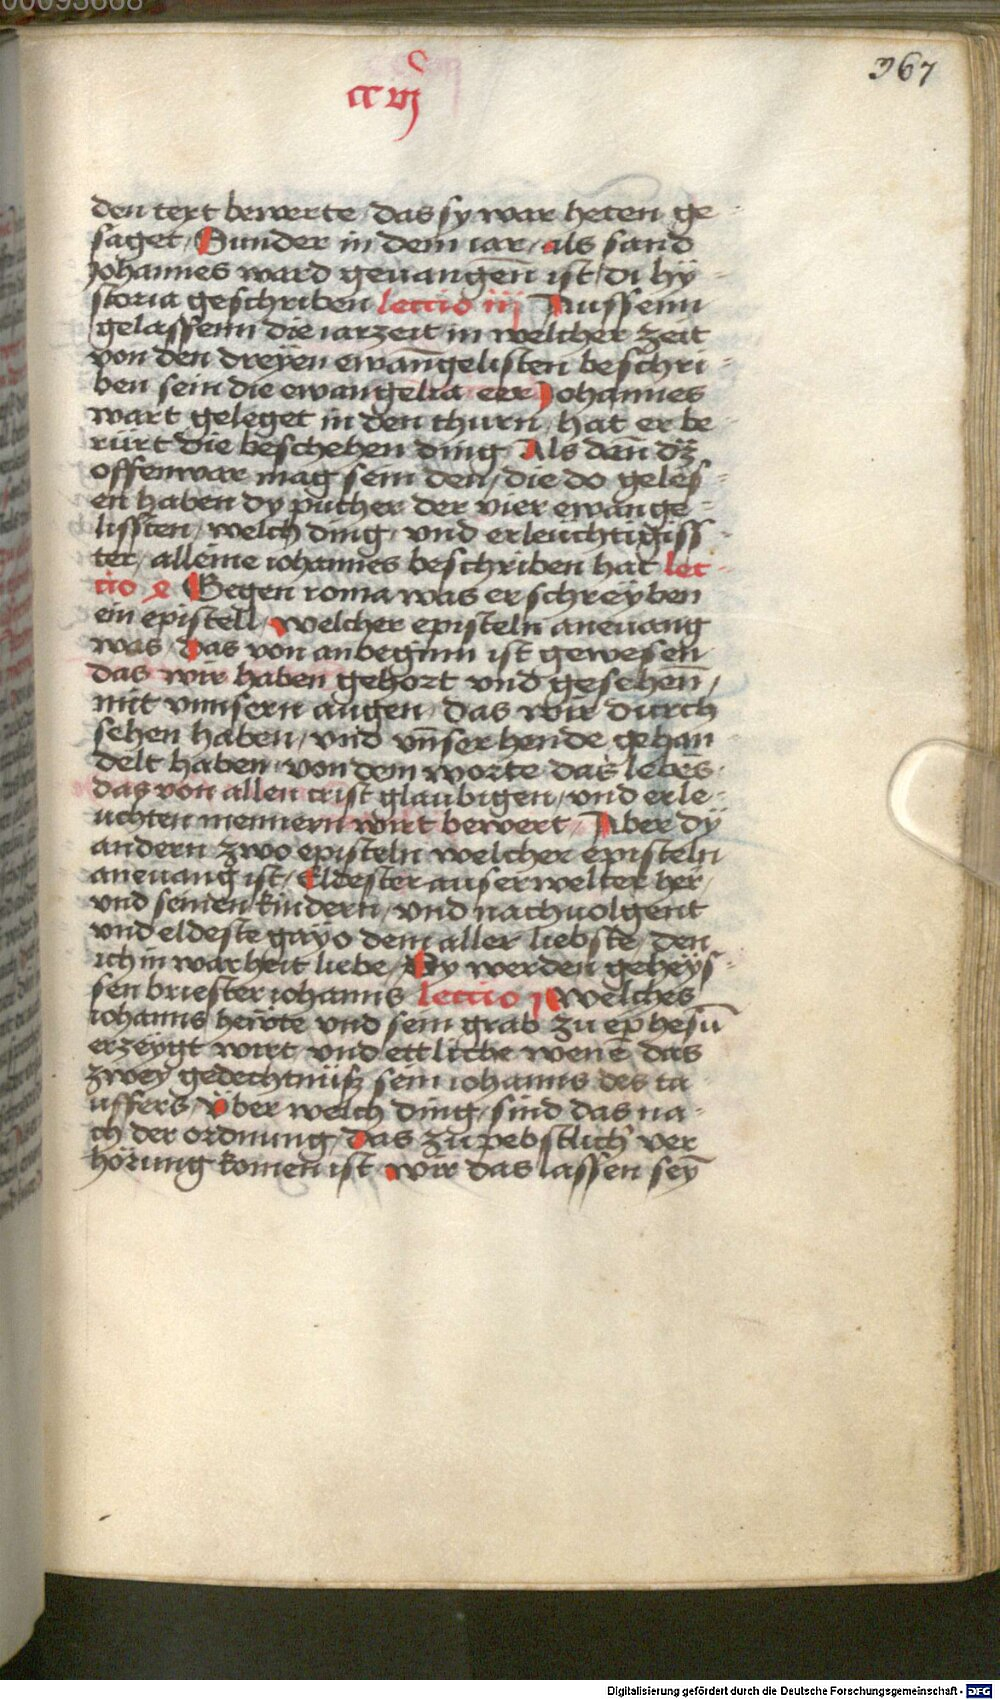 00093668
367
cc vij
den text bewerte / das sy war heten ge-
saget / Sunder in dem iar / als sand
Johannes ward geuangen̄ ist / di hÿ-
storia geschriben lectio iij Aussenn
gelassenn die iarzeit in welcher zeit
von den dreyen ewan̄gelisten beschri-
ben sein die ewangelia eer Johannes
wart geleget in den thurn / hat er be-
rürt die beschehen ding Als dan̄ dz
offenwar mag sein den / die do geles-
en haben dy pücher der vier ewange-
lissten / welch ding / vnd erleuchtigiss-
ter / alleine iohannes beschriben hat lec-
tio Gegen roma was er schreÿben
ein epistell / welcher episteln aneuang
was / das von anbeginn ist gewesen
das wir haben gehort vnd gesehen̄ /
mit vnnsern augen / das wir durch
sehen haben / vnd vn̄ser hende gehan-
delt haben / von dem worte das lebes /
das von allen crist glaubigen / vnd erle-
uchten mennern wirt bewert / Aber dÿ
andern zwo episteln welcher episteln
aneuang ist / Eldester auserwelter her /
vnd seinen kindern / vnd nachuolgent
vnd eldeste gayo dem aller liebste / den
ich in warheit liebe / Dy werden geheÿs-
sen briester iohannis lectio welches
iohannis hewte vnd sein grab zu ephesū
erzeygt wirt vnd ettliche wenē das
zwey gedechtnüß sein iohannis des ta-
uffers / Über welch ding / sind das na-
ch der ordnung / das zu pebstlich ver
hörung komen ist wir das lassen seȳ
Digitalisierung gefördert durch die Deutsche Forschungsgemeinschaft - DFG